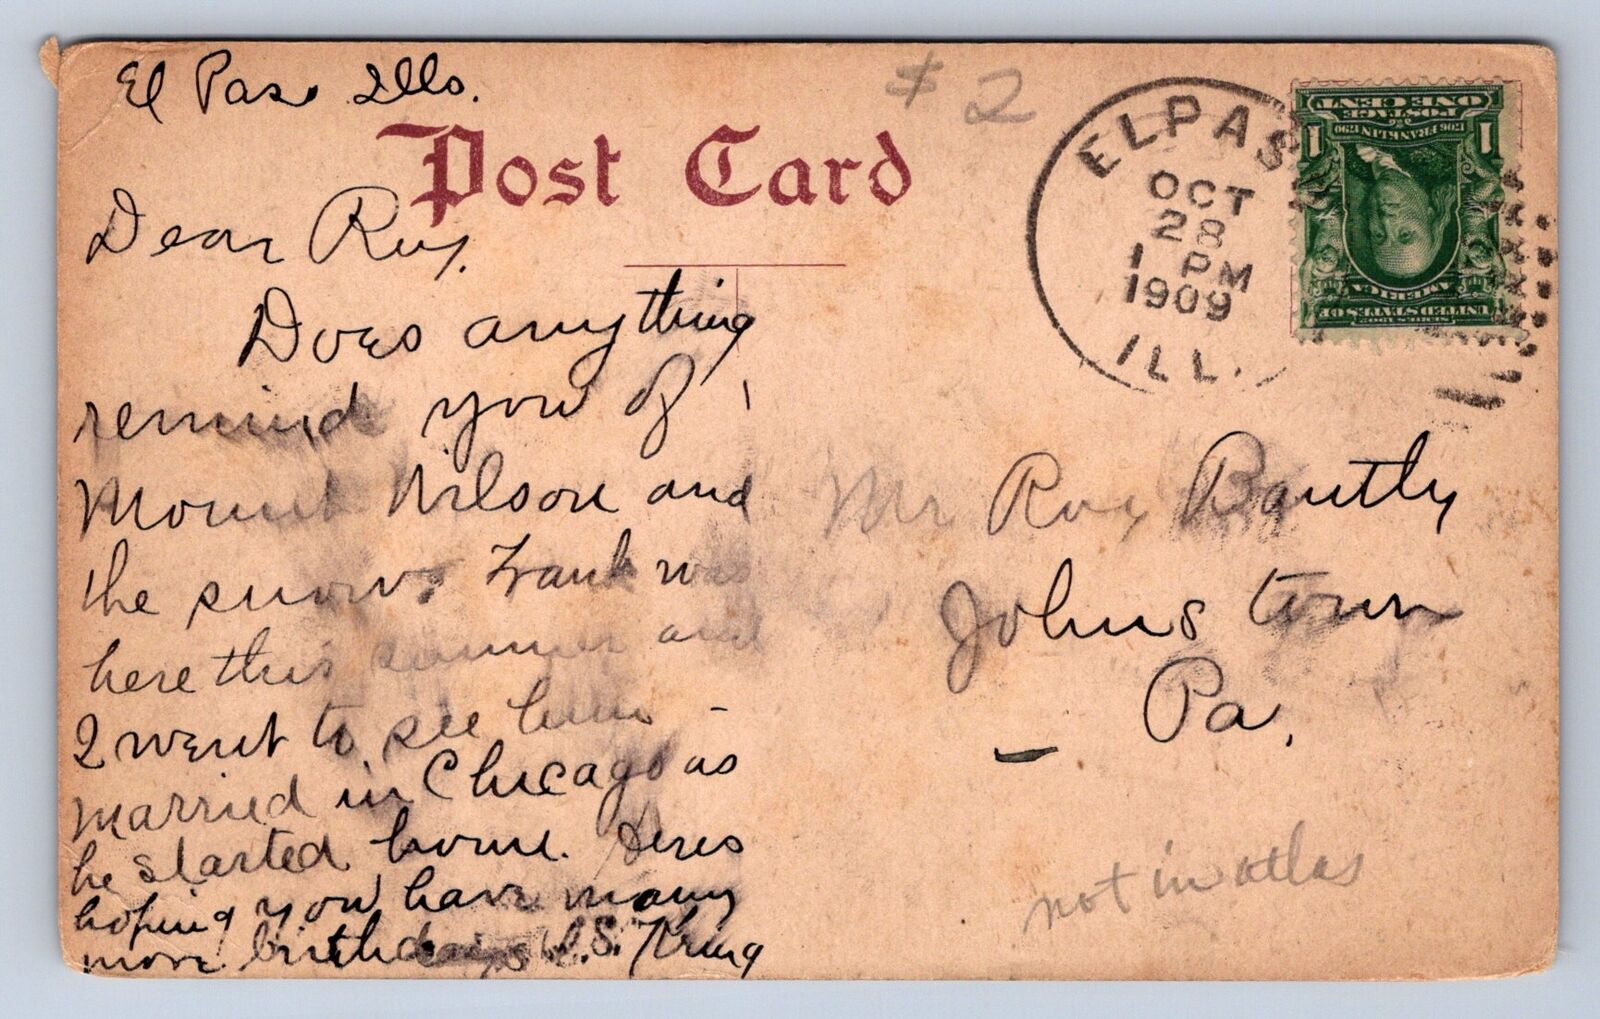 El Paso Ills.
# 2
Post Card
ELPASO
OCT
28
1 PM
1909
ILL.
ONE CENT
POSTAGE
1706 FRANKLIN 1790
1 1
SERIES 1902
UNITED STATES OF
AMERICA
Dear Roy.
Does anything
remind you of
Mount Wilson and
the snow. Frank was
here this summer and
I went to see him
married in Chicago as
he started home. Heres
hoping you have many
more birthdays. S. King
Mr Roy Bantly
Johnstown
Pa.
not in atlas